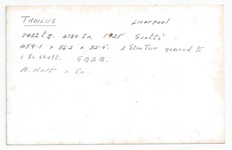 THALLUS Liverpool
7422 tg. 4784 tn. 1925 Scotts'
459.1 x 56.3 x 32.5. 2 Stm Tur. geared to
1 Sc shaft. GB2B.
A. Holt & Co.